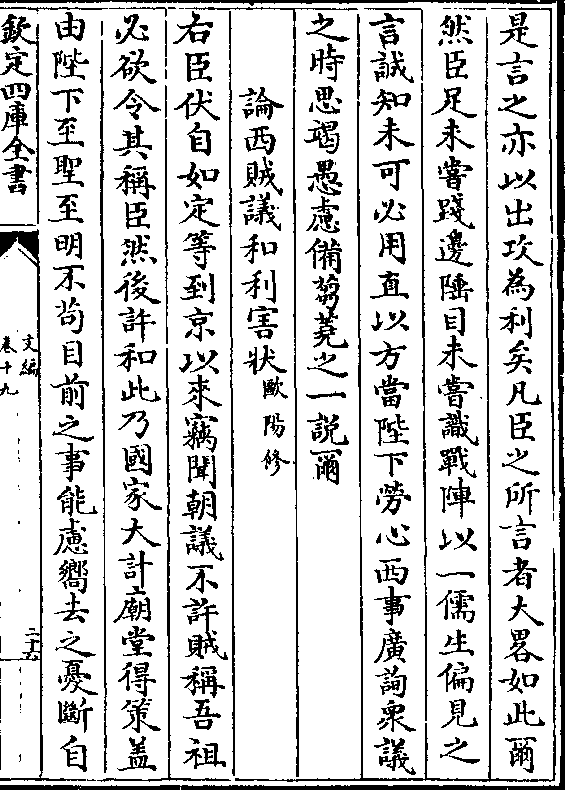 是言之亦以出攻為利矣凡臣之所言者大畧如此爾
然臣足未嘗踐邊陲目未嘗識戰陣以一儒生偏見之
言誠知未可必用直以方當陛下勞心西事廣詢衆議
之時思竭愚慮備芻蕘之一説爾
論西賊議和利害狀歐陽修
右臣伏自如定等到京以來竊聞朝議不許賊稱吾祖
必欲令其稱臣然後許和此乃國家大計廟堂得策蓋
由陛下至聖至明不茍目前之事能慮嚮去之憂斷自
欽定四庫全書
文編
卷十九
二十六